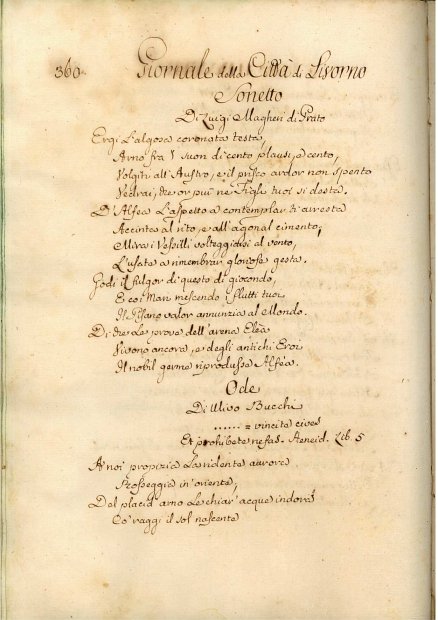 360. Giornale della Città di Livorno
Sonetto
Di Luigi Magheri di Prato
Ergi l'algosa coronata testa,
Arno fra 'l suon di cento plausi, e cento,
Volgiti all'Austro, e il prisco ardor non spento
Vedrai, che or più ne' Figli tuoi si desta.
D'Alfea l'aspetto a contemplar ti arresta
Accinta al rito, e all'agonal cimento,
Mira i Vessilli volteggiarsi al vento,
L'usata a rimembrar gloriosa gesta.
Godi il fulgor di questo dì giocondo,
E coi Mari mescendo i flutti tuoi
Il Pisano valor annunzia al Mondo.
Di che le prove dell'arena Elèa
Vivono ancora, e degli antichi Eroi
Il nobil germe riprodusse Alfèa.
Ode
Di Ulivo Bucchi
...... = vincite cives
Et prohibete nefas. Aeneid. Lib. 5
A noi propizia la ridente aurora
Rosseggia in oriente,
Del placid'arno le chiar'acque indora
Co' raggi il sol nascente